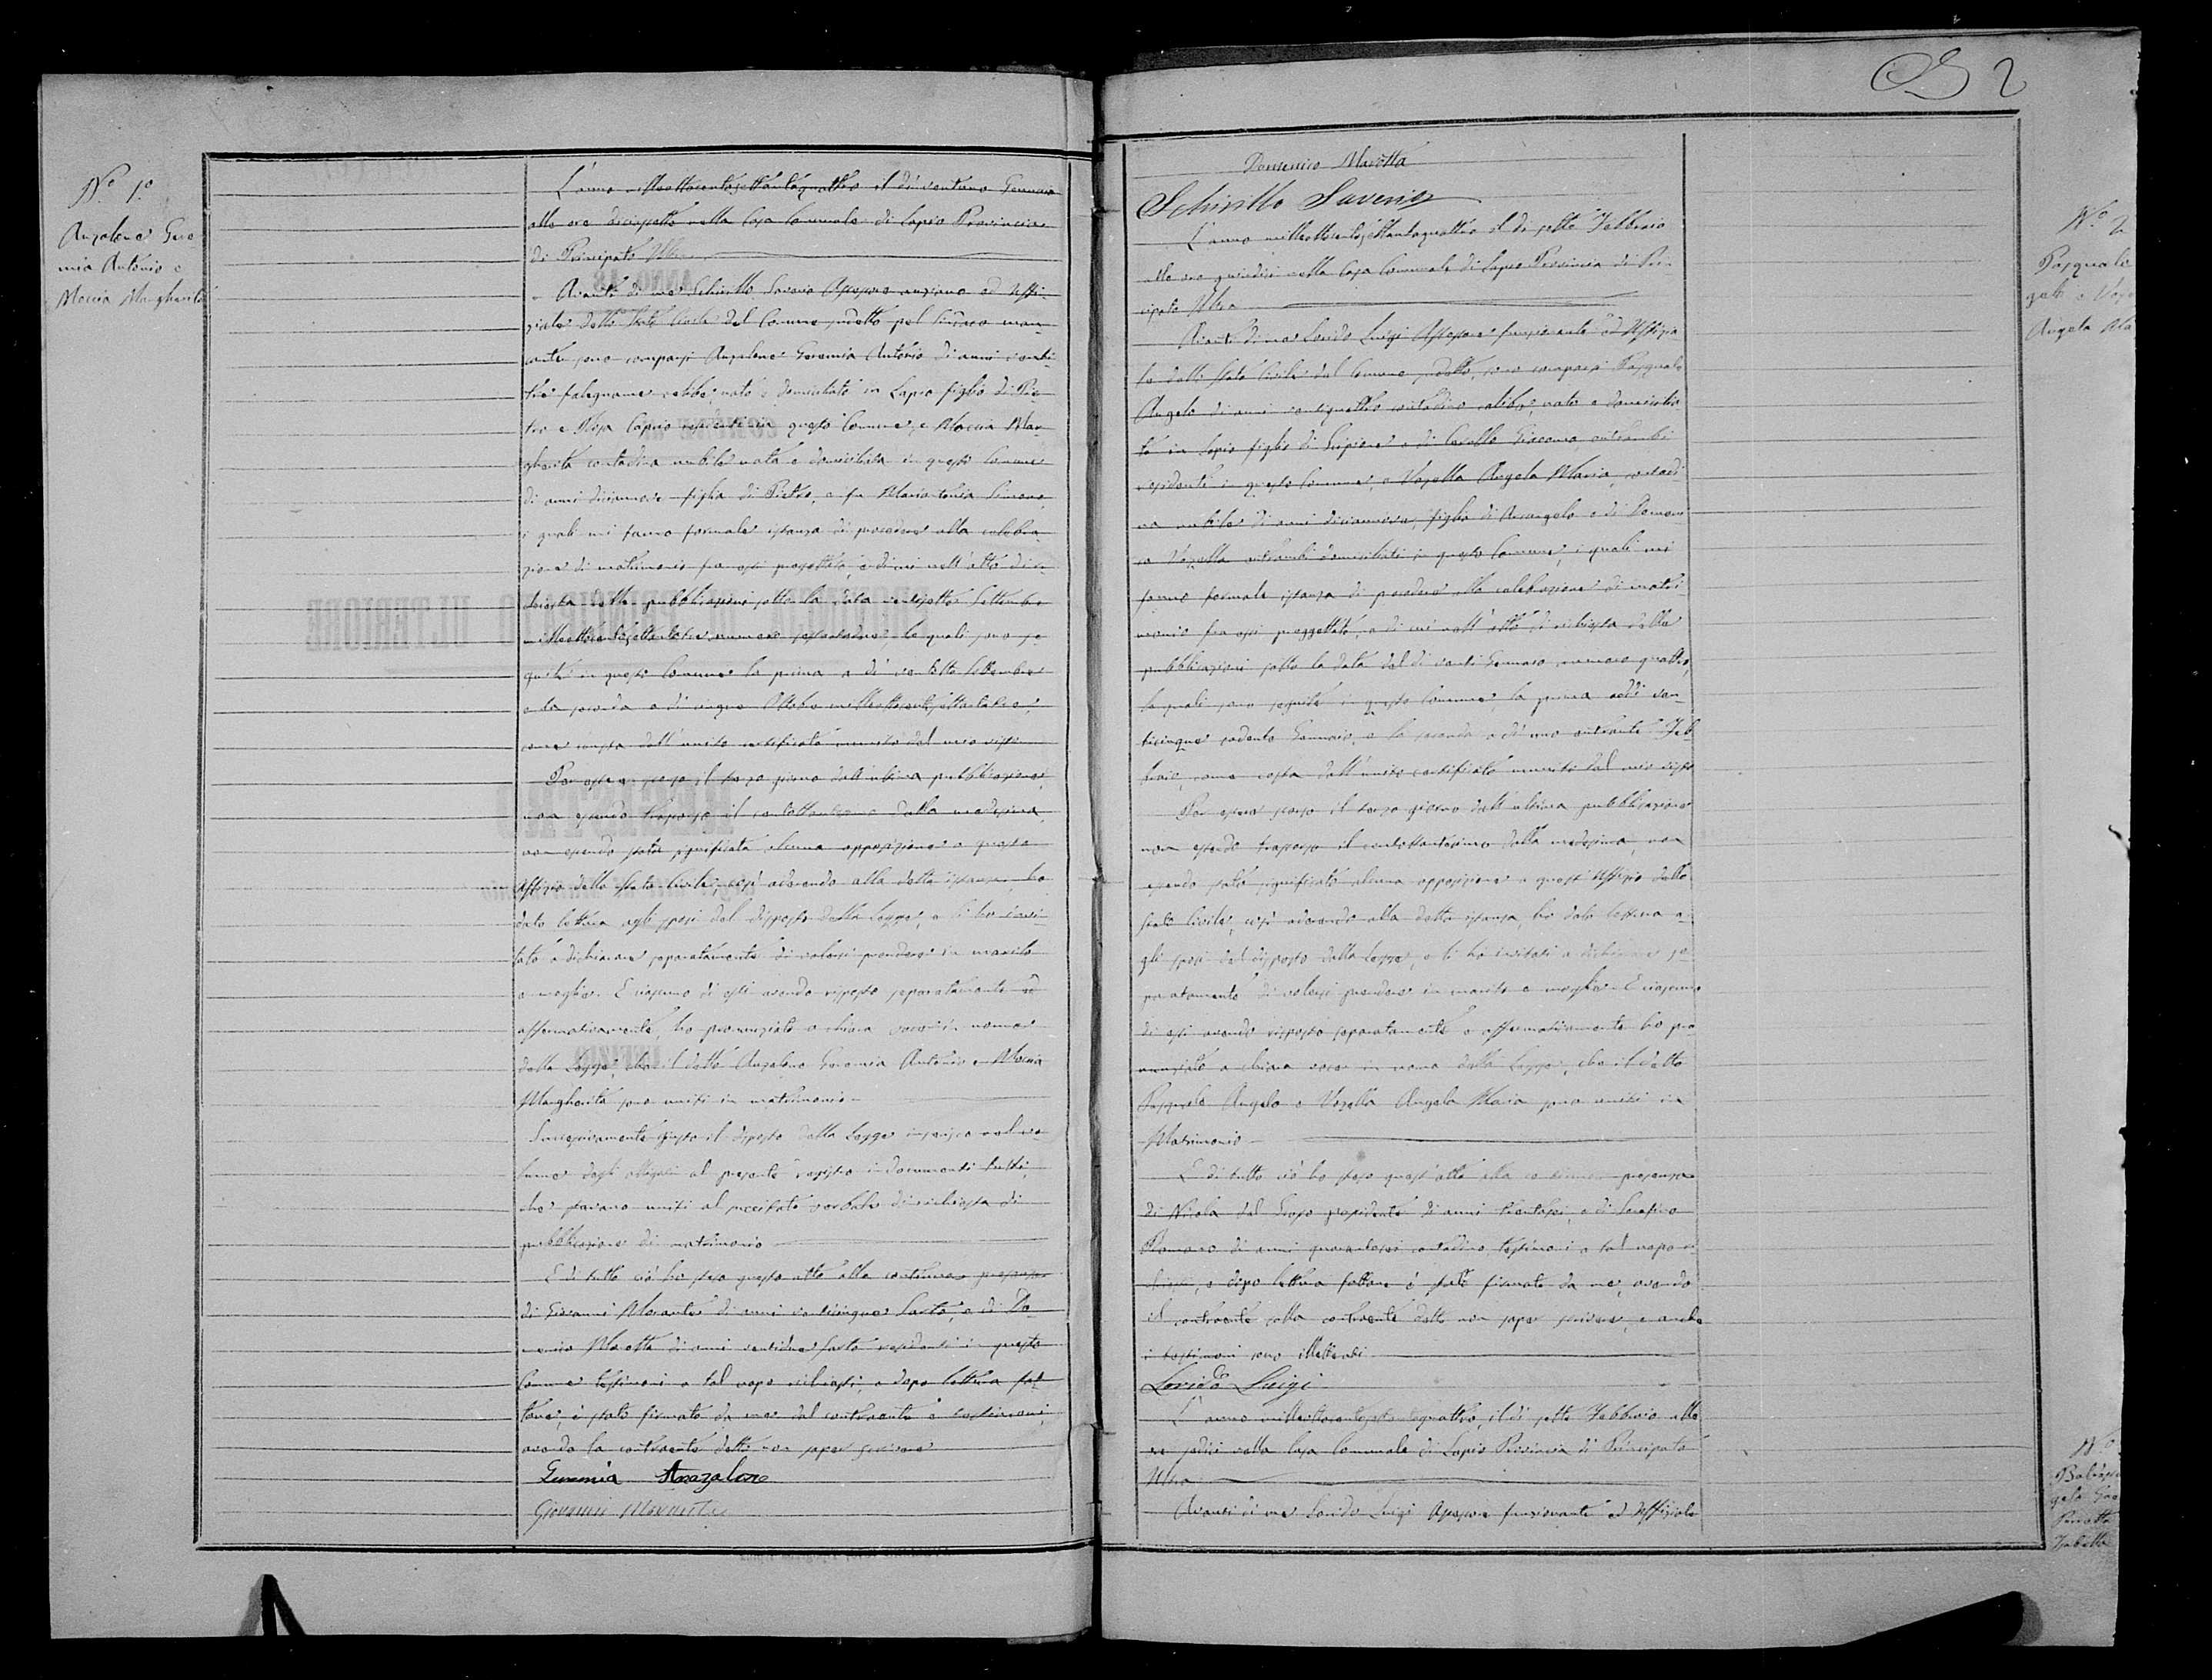 2
N.º 1.º
Anzalone Gere-
mia Antonio e
Moccia Margherita
L'anno milleottocentosettantaquattro il dì ventuno Gennaro
alle ore diciassette nella Casa Comunale di Lapio Provincia
di Principato Ultra
Avanti di me Schirillo Saverio Assessore anziano ed Uffi-
ziale dello Stato Civile del Comune sudetto pel Sindaco man-
cante sono comparsi Anzalone Geremia Antonio di anni venti-
tre falegname celibe, nato e domiciliato in Lapio figlio di Pie-
tro e Rosa Caprio residente in questo Comune, e Moccia Mar-
gherita contadina nubile nata e domiciliata in questo Comune
di anni diciannove figlia di Pietro, e fu Maria Antonia
i quali mi fanno formale istanza di procedere alla celebra-
zione di matrimonio fra essi progettato, e di cui nell'atto di ri-
chiesta delle pubblicazioni sotto la data ventisette Settembre
milleottocentosettantatre numero le quali sono se-
guite in questo Comune la prima a dì ventotto Settembre
e la seconda a dì cinque Ottobre milleottocentosettantatre,
come consta dall'unito certificato munito del mio visto
Per essere scorso il terzo giorno dall'ultima pubblicazione,
non essendo trascorso il centottantesimo dalla medesima,
non essendo stata significata alcuna opposizione a questo
Uffizio dello Stato Civile, così aderendo alla detta istanza, ho
dato lettura agli sposi del disposto della Legge, e li ho invi-
tati a dichiarare separatamente di volersi prendere in marito
e moglie. E ciascuno di essi avendo risposto separatamente ed
affermativamente, ho pronunziato a chiara voce in nome
della Legge, che il detto Anzalone Geremia Antonio e Moccia
Margherita sono uniti in matrimonio
Successivamente giusto il disposto della Legge inserisco nel vo-
lume degli allegati al presente registro i documenti tutti,
che stavano uniti al precitato verbale di richiesta di
pubblicazione di matrimonio
E di tutto ciò ho steso questo atto alla continua presenza
di Giovanni Morante di anni venticinque Sarto, e di Do-
menico Marotta di anni ventidue Sarto residenti in questo
Comune testimoni a tal uopo richiesti, e dopo lettura fat-
tane, è stato firmato da me dal contraente e testimoni,
avendo la contraente detto non saper scrivere
Geremia Anzalone
Giovanni Morante
Domenico Marotta
Schirillo Saverio
L'anno milleottocentosettantaquattro il dì sette Febbraio
alle ore quindici nella Casa Comunale di Lapio Provincia di Prin-
cipato Ultra
Avanti di me Lorido Luigi Assessore funzionante ed Uffizia-
le dello Stato Civile del Comune sudetto, sono comparsi Pasquale
Angelo di anni ventiquattro contadino celibe, nato e domicilia-
to in Lapio figlio di Scipione e di Carullo Giacoma entrambi
residenti in questo Comune, e Vozella Angela Maria, contadi-
na nubile di anni diciannove, figlia di Arcangelo e di Domeni-
ca Vozella entrambi domiciliati in questo Comune, i quali mi
fanno formale istanza di procedere alla celebrazione di matri-
monio fra essi proggettato, e di cui nell'atto di richiesta delle
pubblicazioni sotto la data del dì venti Gennaro numero quattro,
le quali sono seguite in questo Comune, la prima addì ven-
ticinque cadente Gennaio, e la seconda a dì uno entrante Feb-
braio, come costa dall'unito certificato munito dal mio visto
Per essere scorso il terzo giorno dall'ultima pubblicazione
non essendo trascorso il centottantesimo dalla medesima, non
essendo stata significata alcuna opposizione a questo Uffizio dello
Stato Civile, così aderendo alla detta istanza, ho dato lettura a-
gli sposi del disposto della Legge, e li ho invitati a dichiarare se-
paratamente di volersi prendere in marito e moglie. E ciascuno
di essi avendo risposto separatamente e affermativamente ho pro-
nunziato a chiara voce in nome della Legge, che il detto
Pasquale Angelo e Vozella Angela Maria sono uniti in
Matrimonio
E di tutto ciò ho steso quest'atto alla continua presenza
di Nicola Del Grosso possidente di anni trentasei, e di Serafino
Romano di anni quarantasei contadino testimoni a tal uopo ri-
chiesti, e dopo lettura fattane è stato firmato da me, avendo
il contraente colla contraente detto non saper scrivere, e anche
i testimoni sono illetterati
Lorido Luigi
L'anno milleottocentosettantaquattro, il dì sette Febbraio alle
ore sedici nella Casa Comunale di Lapio Provincia di Principato
Ultra
Avanti di me Lorido Luigi Assessore funzionante ed Uffiziale
N.º 2
Pasquale
gelo e Voze
Angela Ma
N.º